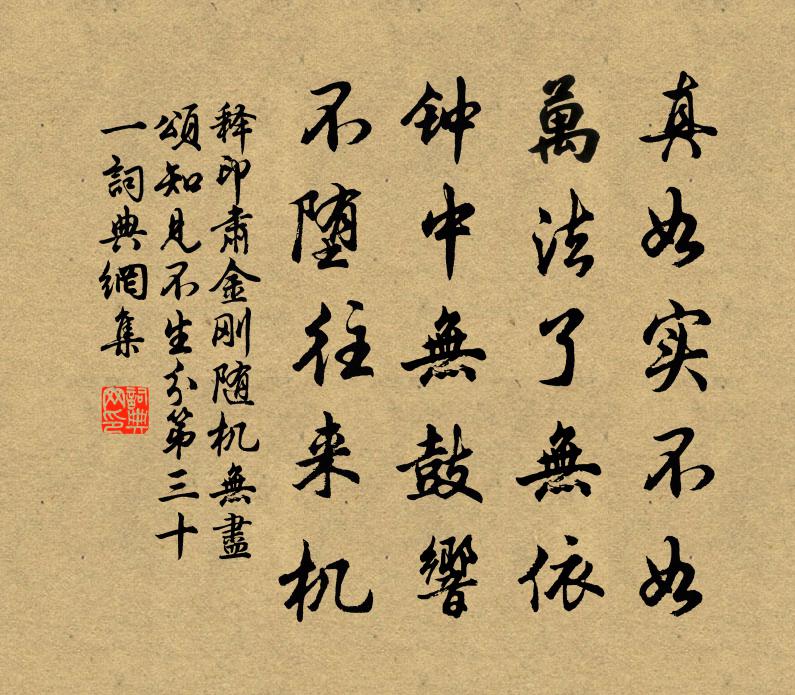 真如实不如
萬法了無依
钟中無鼓響
不堕往来机
释印肃金刚随机無盡
頌知见不生分第三十
一詞典網集
詞典网印